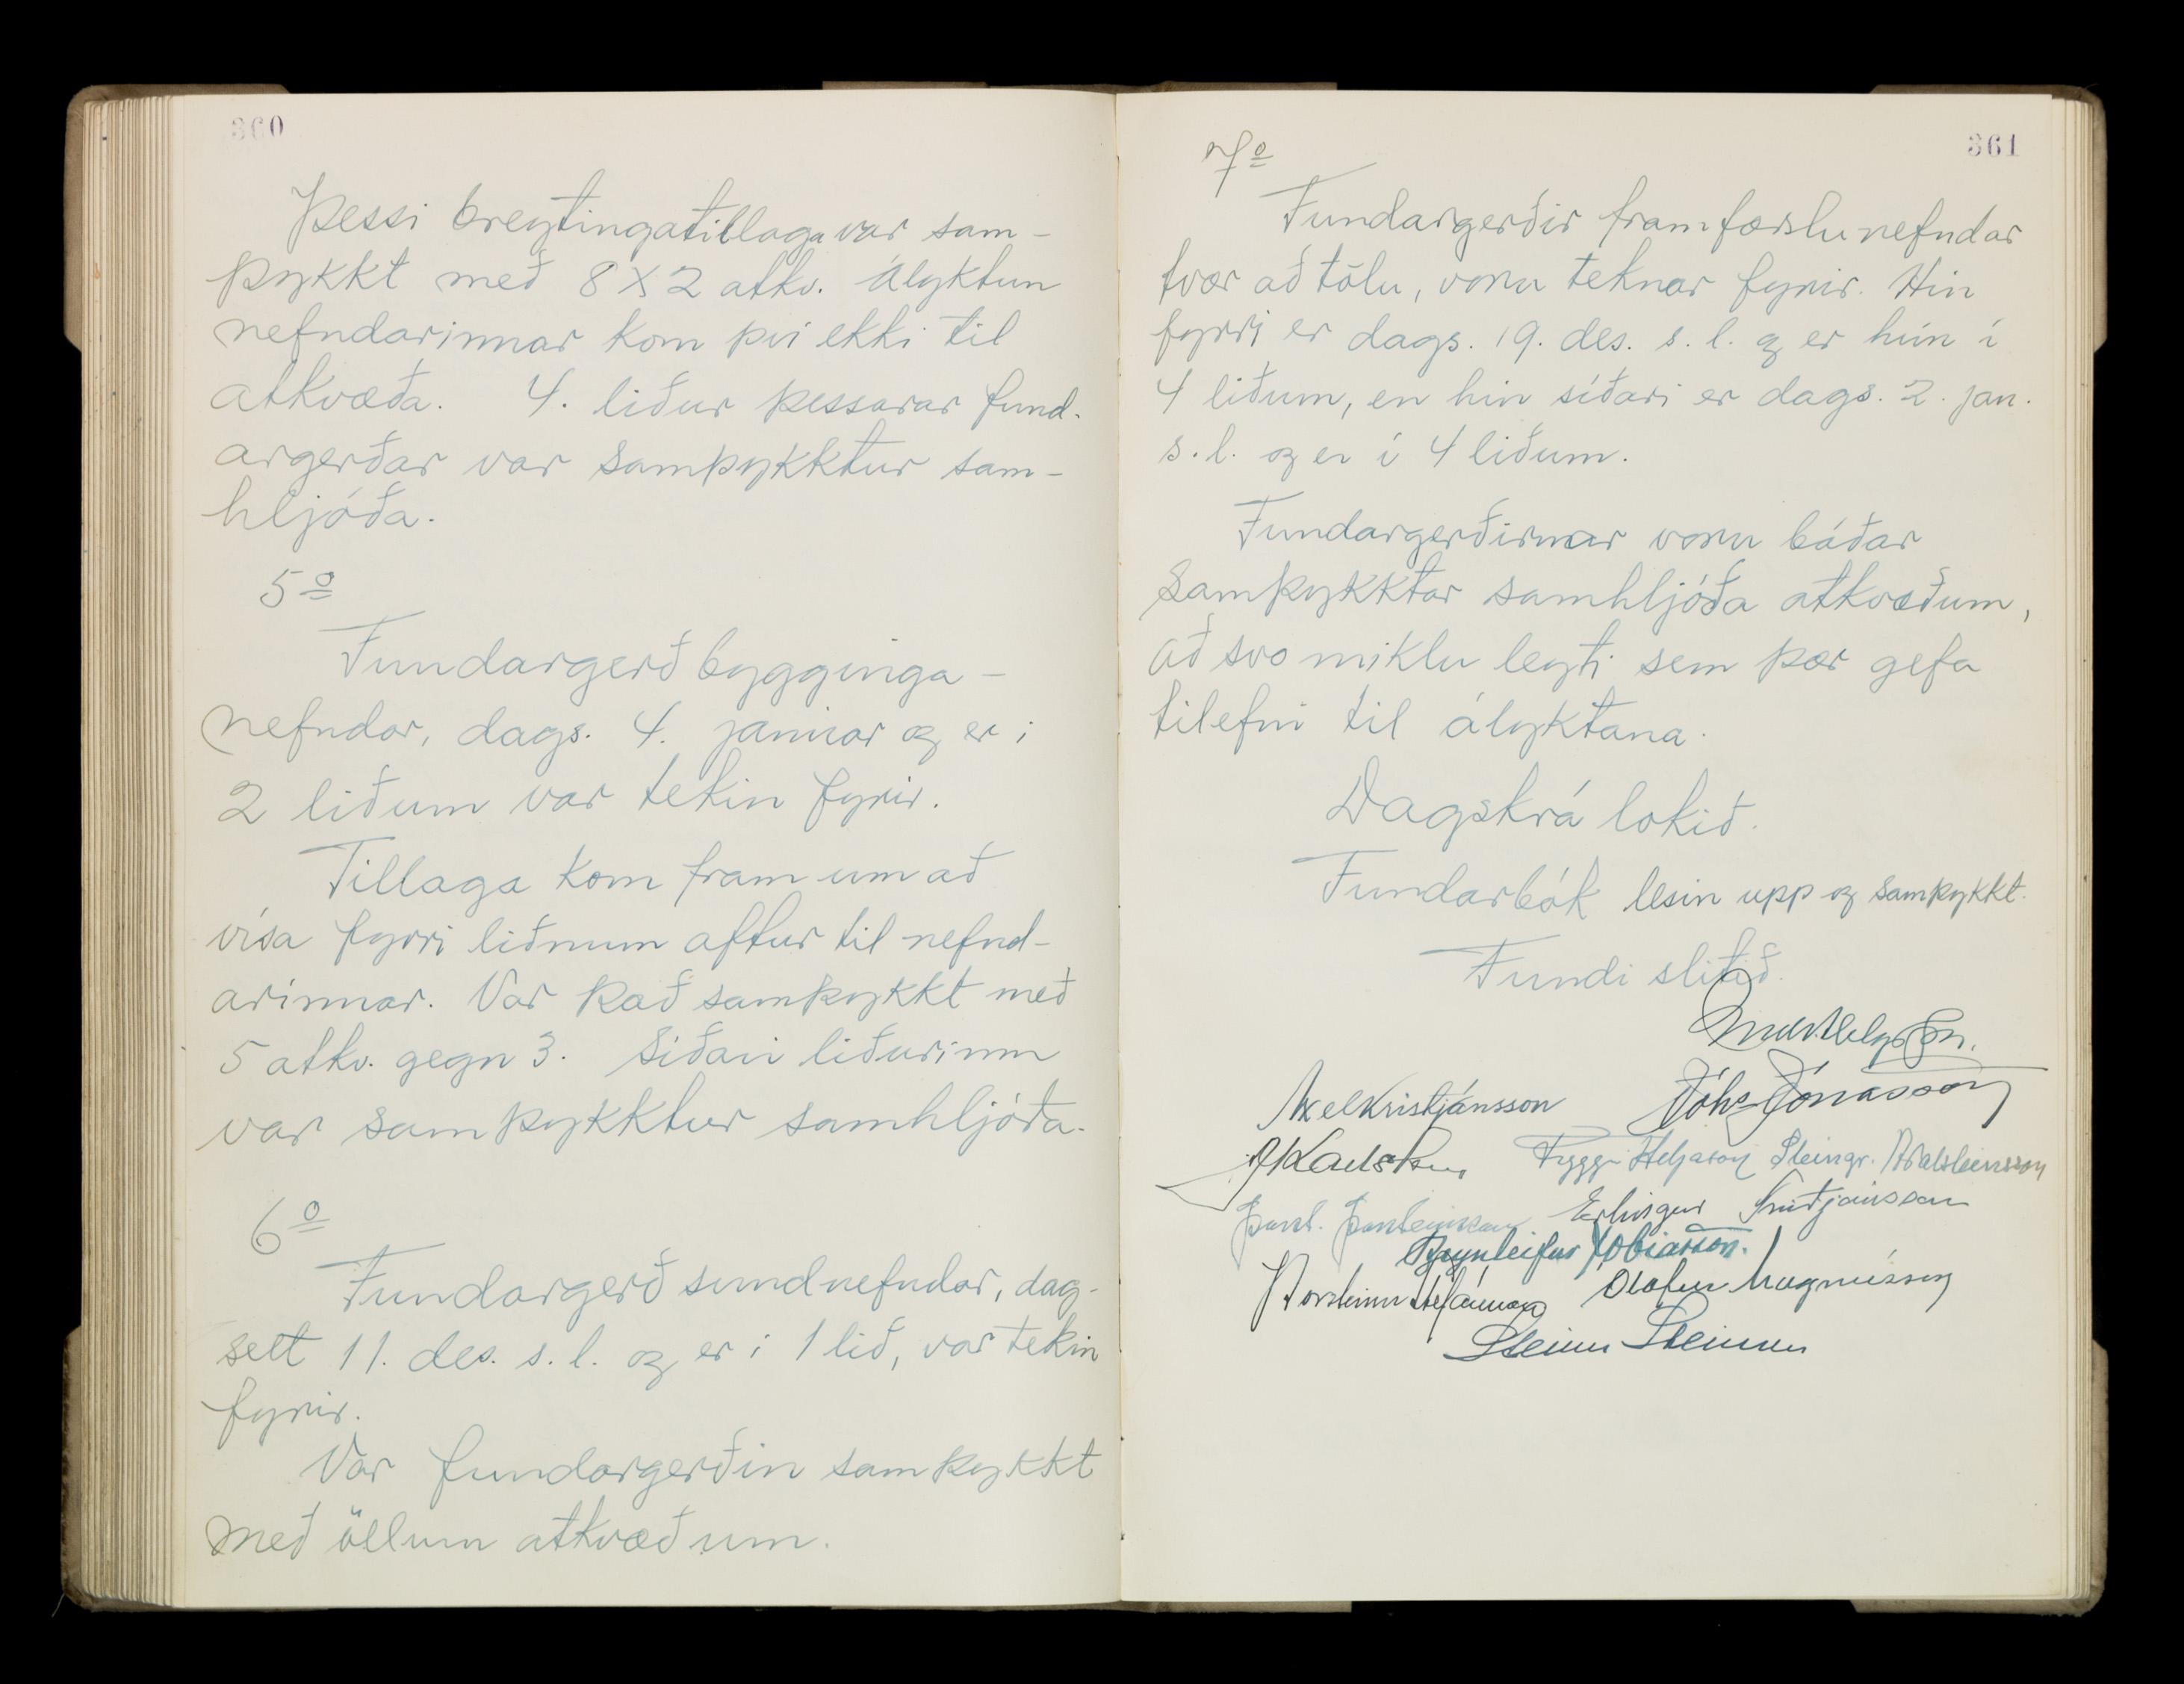 360
Þessi breytingatillaga var sam-
þykkt með 8 X 2 atkv. Ályktun
nefndarinnar kom því ekki til
atkvæða. 4. liður þessarar fund-
argerðar var samþykktur sam-
hljóða.
5º
Fundargerð bygginga-
nefndar, dags. 4. janúar og er í
2 liðum var tekin fyrir.
Tillaga kom fram um að
vísa fyrri liðnum aftur til nefnd-
arinnar. Var það samþykkt með
5 atkv. gegn 3. Síðari liðurinn
var samþykktur samhljóða.
6º
Fundargerð sundnefndar, dag-
sett 11. des. s.l. og er í 1 lið, var tekin
fyrir.
Var fundargerðin samþykkt
með öllum atkvæðum.
361
7º
Fundargerðir framfærslunefndar
tvær að tölu, voru teknar fyrir. Hin
fyrri er dags. 19. des. s.l. og er hún í
4 liðum, en hin síðari er dags. 2. jan.
s.l. og er í 4 liðum.
Fundargerðirnar voru báðar
samþykktar samhljóða atkvæðum,
að svo miklu leyti sem þær gefa
tilefni til ályktana.
Dagskrá lokið.
Fundarbók lesin upp og samþykkt.
Fundi slitið.
Axel Kristjánsson Jóhs Jónasson
Tryggvi Helgason Steingr. Aðalsteinsson
Þorst. Þorsteinsson Erlingur Friðjónsson
Brynleifur Tobiasson.
Þorsteinn Stefánsson Ólafur Magnússon
Steinn Steinsen